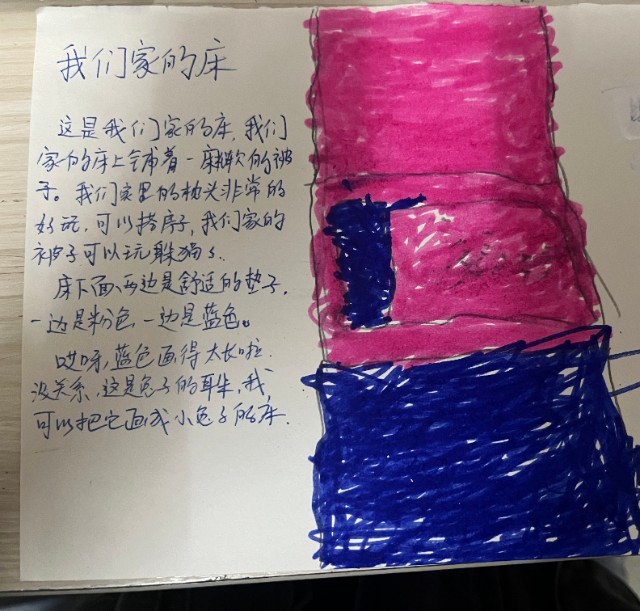 我们家的床
这是我们家的床,我们
家的床上铺着一床软软的被
子。我们家里的枕头非常的
好玩,可以搭房子,我们家的
被子可以玩躲猫了.
床下面两边是舒适的垫子,
一边是粉色,一边是蓝色。
哎呀,蓝色画得太长啦.
没关系,这是兔子的耳朵,我
可以把它画成小兔子的床.